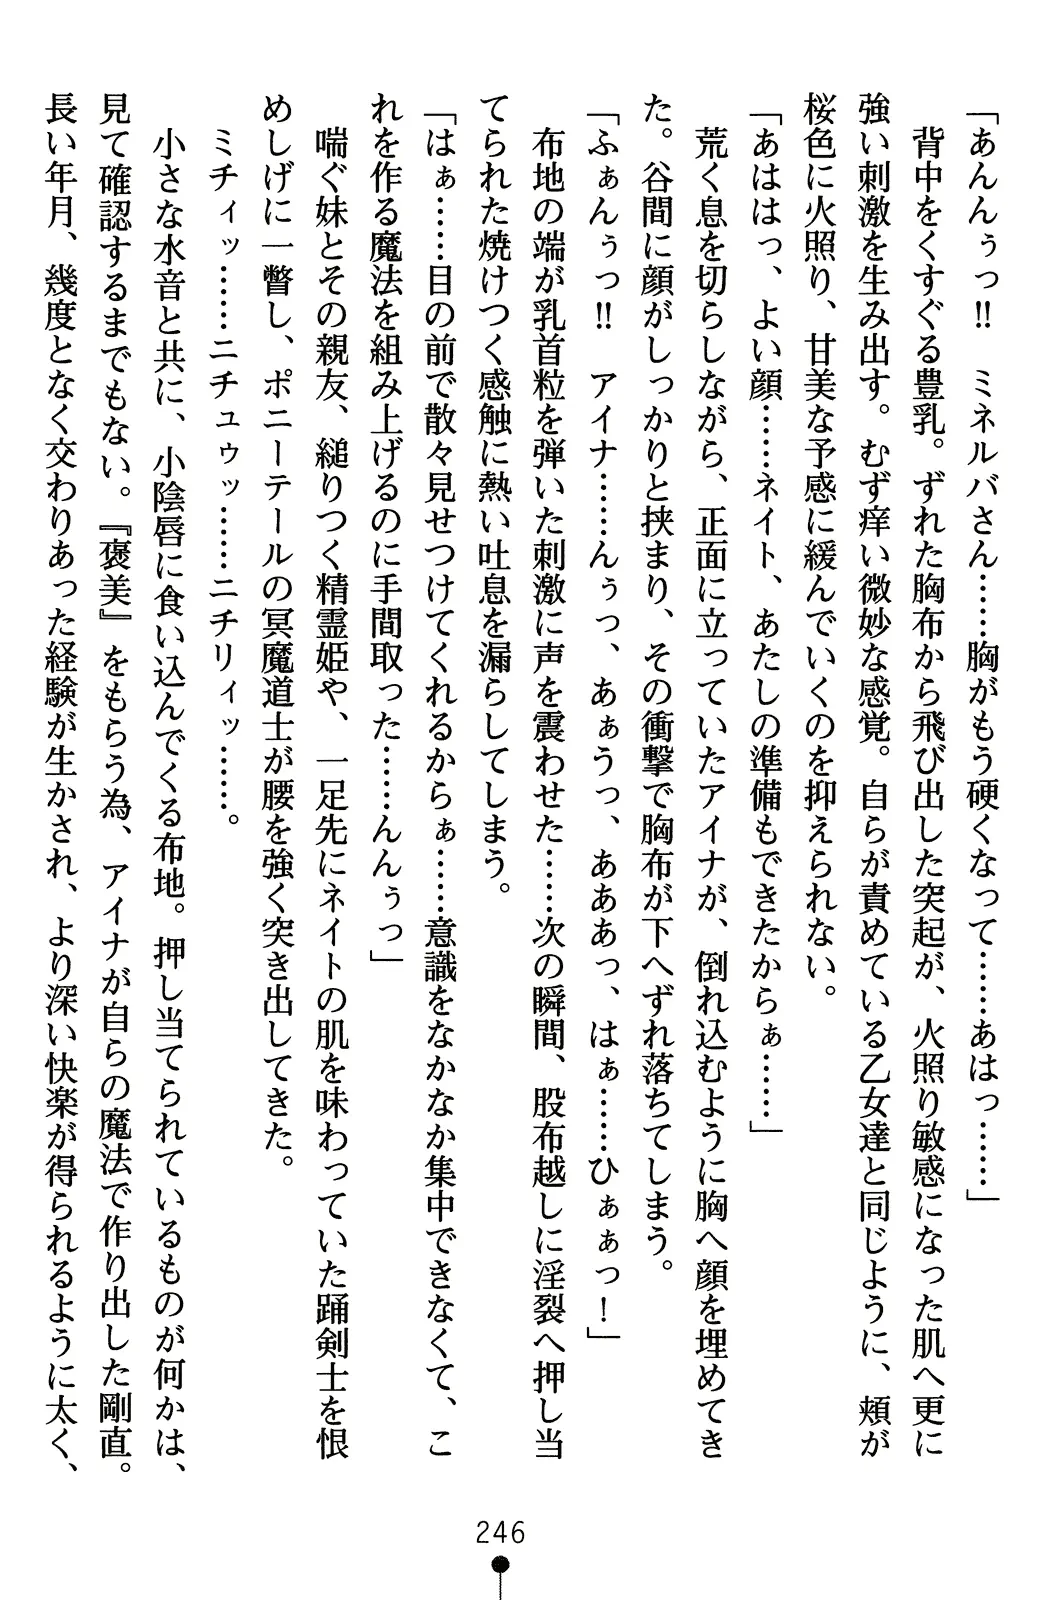 「あんんぅっ!!　ミネルバさん……胸がもう硬くなって……あはっ……」
　背中をくすぐる豊乳。ずれた胸布から飛び出した突起が、火照り敏感になった肌へ更に
強い刺激を生み出す。むず痒い微妙な感覚。自らが責めている乙女達と同じように、頬が
桜色に火照り、甘美な予感に緩んでいくのを抑えられない。
「あははっ、よい顔……ネイト、あたしの準備もできたからぁ……」
　荒く息を切らしながら、正面に立っていたアイナが、倒れ込むように胸へ顔を埋めてき
た。谷間に顔がしっかりと挟まり、その衝撃で胸布が下へずれ落ちてしまう。
「ふぁんぅっ!!　アイナ……んぅっ、あぁうっ、あああっ、はぁ……ひぁぁっ！」
　布地の端が乳首粒を弾いた刺激に声を震わせた……次の瞬間、股布越しに淫裂へ押し当
てられた焼けつく感触に熱い吐息を漏らしてしまう。
「はぁ……目の前で散々見せつけてくれるからぁ……意識をなかなか集中できなくて、こ
れを作る魔法を組み上げるのに手間取った……んんぅっ」
　喘ぐ妹とその親友、縋りつく精霊姫や、一足先にネイトの肌を味わっていた踊剣士を恨
めしげに一瞥し、ポニーテールの冥魔道士が腰を強く突き出してきた。
　ミチィッ……ニチュゥッ……ニチリィッ……。
　小さな水音と共に、小陰唇に食い込んでくる布地。押し当てられているものが何かは、
見て確認するまでもない。『褒美』をもらう為、アイナが自らの魔法で作り出した剛直。
長い年月、幾度となく交わりあった経験が生かされ、より深い快楽が得られるように太く、
246